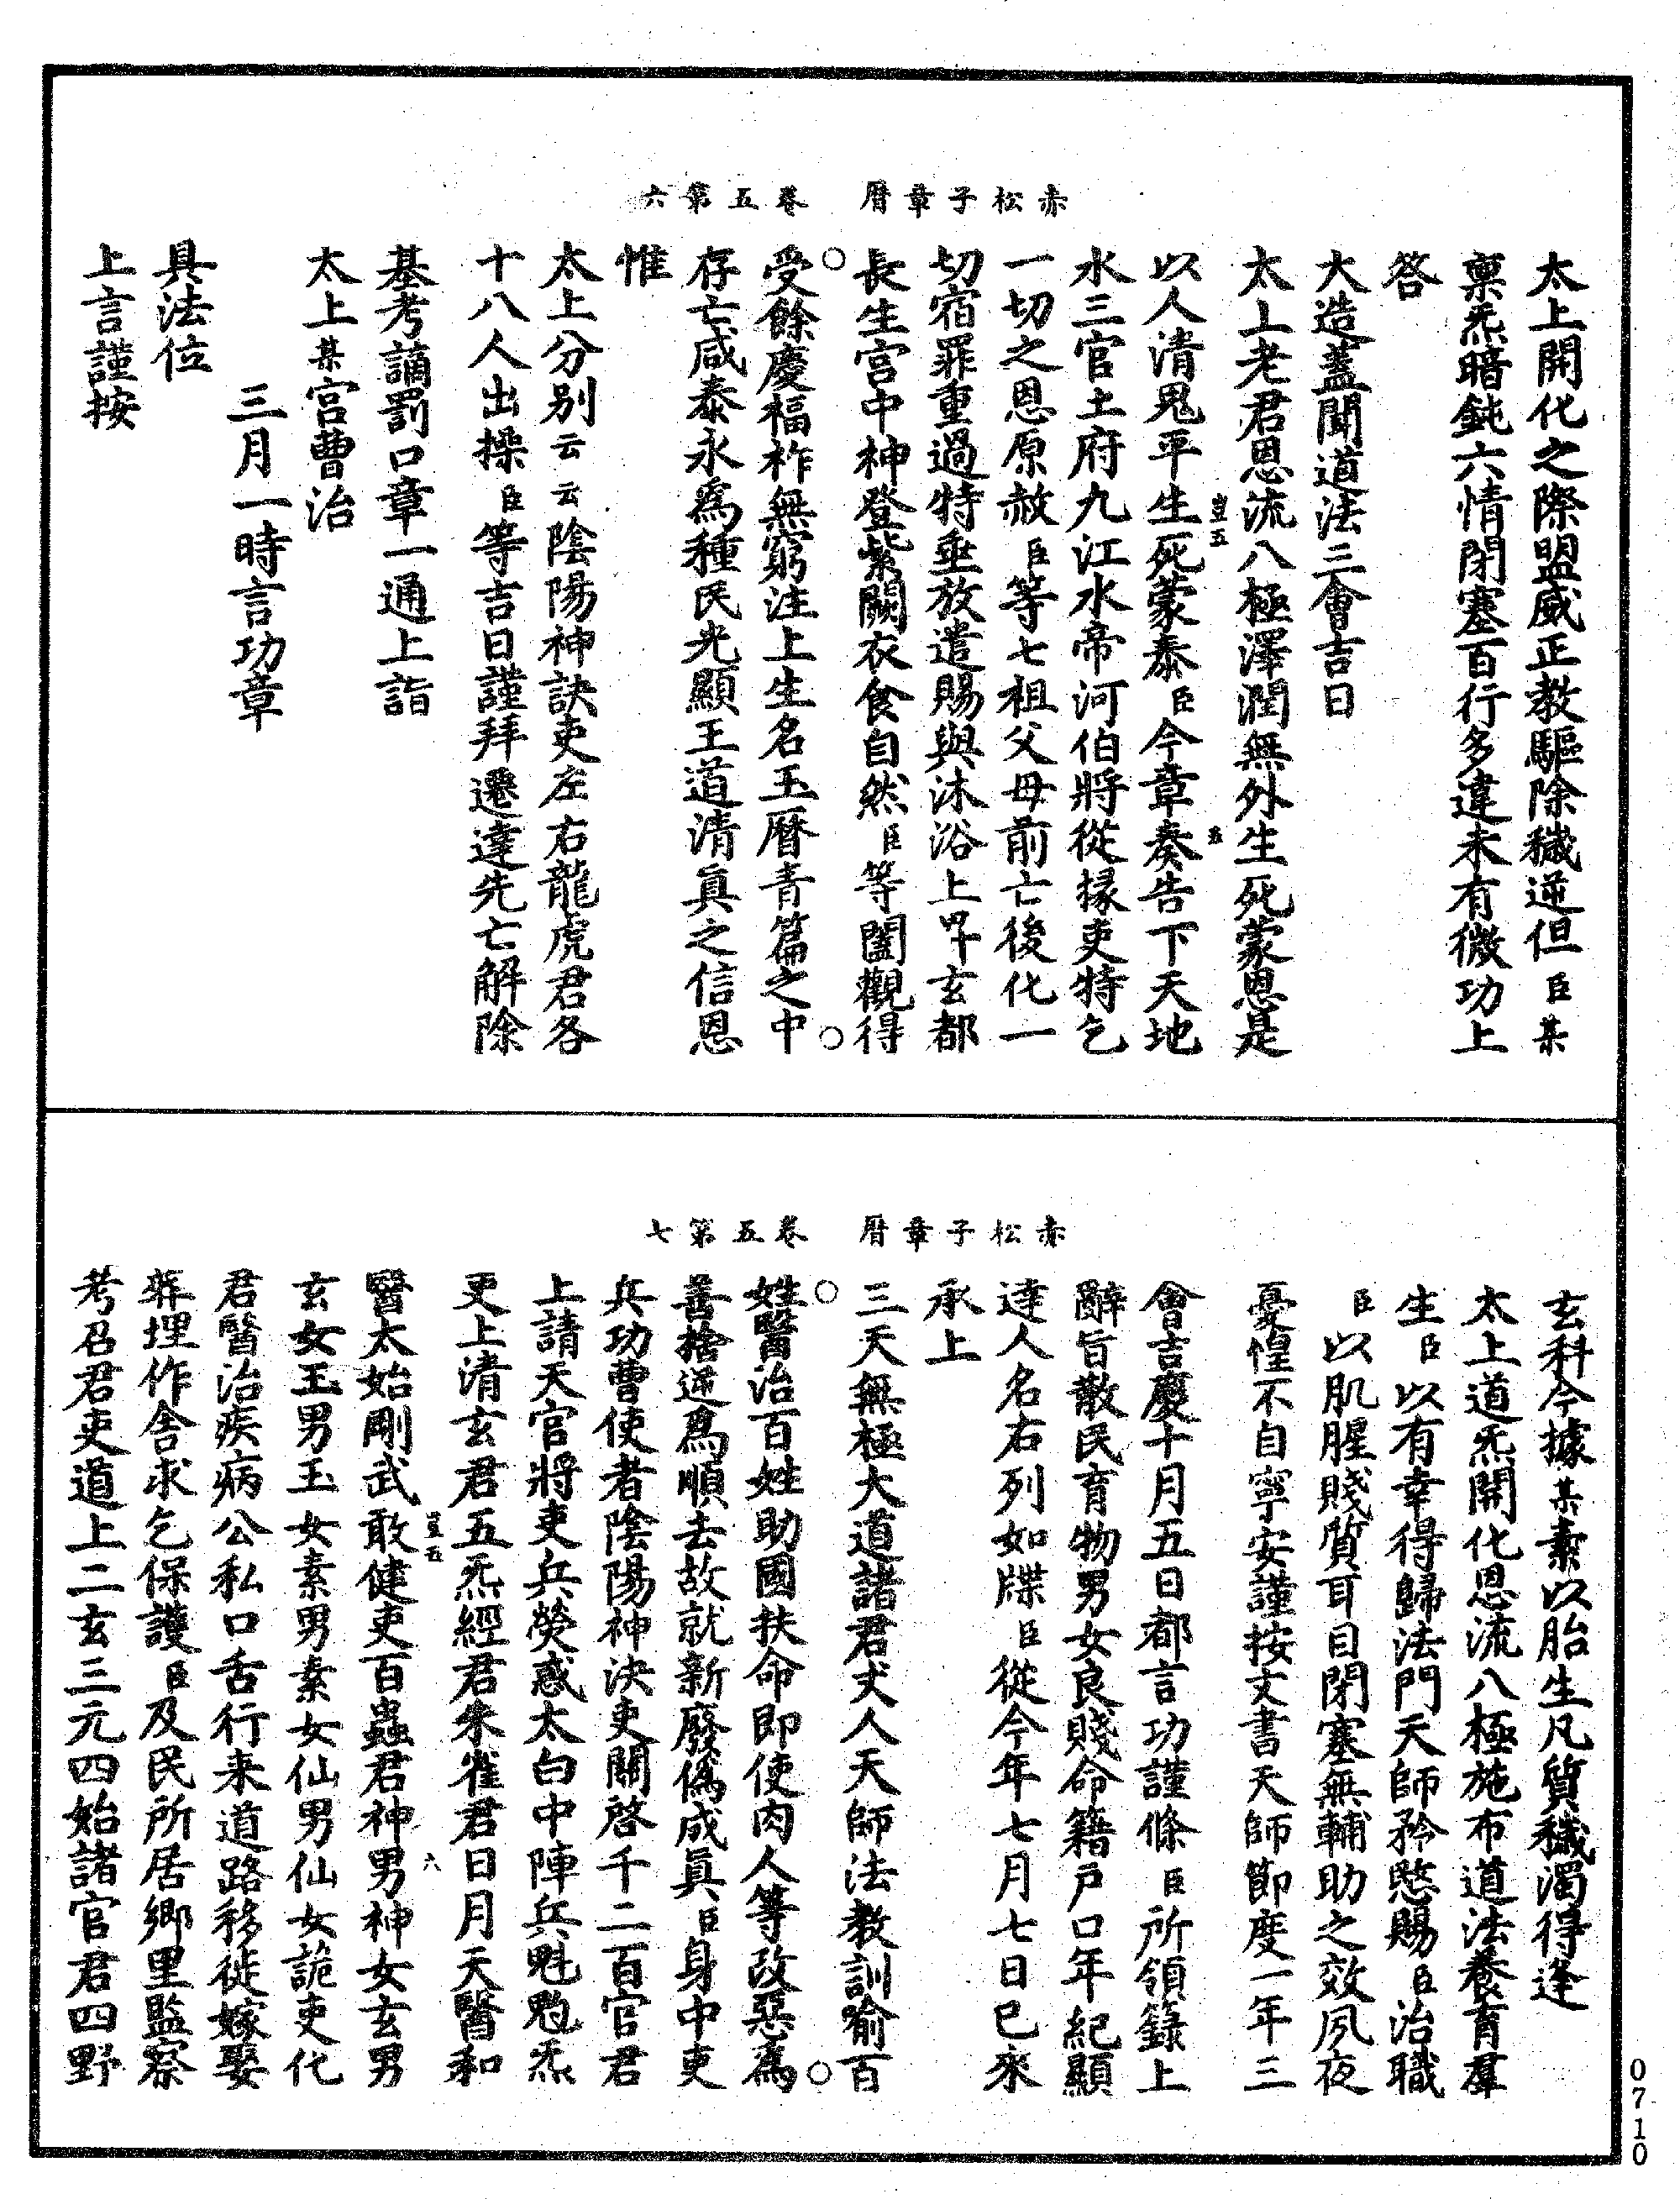 赤松子章曆　卷五第六
太上開化之際盟威正教驅除穢逆但臣某
稟炁暗鈍六情閉塞百行多違未有微功上
答
大造蓋聞道法三會吉日
太上老君恩流八極澤潤無外生死蒙恩是
豈五　五
以人清鬼平生死蒙泰臣今章奏告下天地
水三官土府九江水帝河伯將從掾吏特乞
一切之恩原赦臣等七祖父母前亡後化一
切宿罪重過特垂放遣賜與沐浴上昇玄都
長生宮中神登紫闕衣食自然臣等闔觀得
受餘慶福祚無窮注上生名玉曆青篇之中
存亡咸泰永爲種民光顯王道清真之信恩
惟
太上分别云云陰陽神訣吏左右龍虎君各
十八人出操臣等吉日謹拜遷達先亡解除
基考謫罰口章一通上詣
太上某宮曹治
三月一時言功章
具法位
上言謹按
赤松子章曆　卷五第七
玄科今據某素以胎生凡質穢濁得逢
太上道炁開化恩流八極施布道法養育羣
生臣以有幸得歸法門天師矜愍賜臣治職
臣以肌腥賤質耳目閉塞無輔助之效夙夜
憂惶不自寧安謹按文書天師節度一年三
會吉慶十月五日都言功謹條臣所領籙上
辭旨散民育物男女良賤命籍戶口年紀顯
達人名右列如牒臣從今年七月七日已來
承上
三天無極大道諸君丈人天師法教訓喻百
姓醫治百姓助國扶命即使肉人等改惡爲
善捨逆爲順去故就新廢僞成真臣身中吏
兵功曹使者陰陽神決吏關啓千二百官君
上請天官將吏兵熒惑太白中陣兵魁魁炁
更上清玄君五炁經君朱雀君日月天醫和
豈五　六
醫太始剛武敢健吏百蟲君神男神女玄男
玄女玉男玉女素男素女仙男仙女詭吏化
君醫治疾病公私口舌行来道路移徙嫁娶
葬埋作舍求乞保護臣及民所居鄉里監察
考召君吏道上二玄三元四始諸官君四野
0710